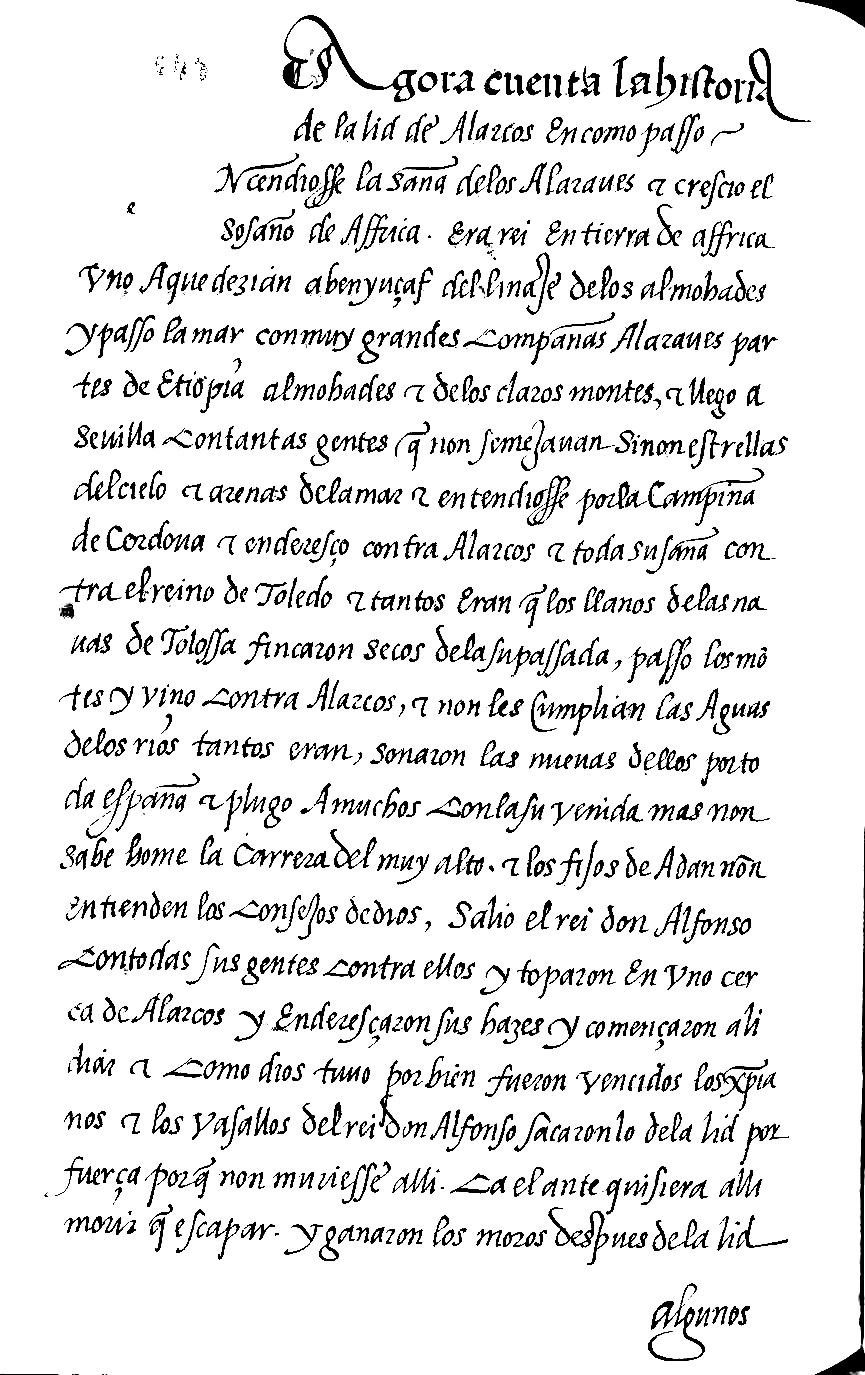 Agora cuenta la historia
de la lid de Alarcos En como passo
e Ncendiosse la saña delos Alaraues & crescio el
sosaño de Affrica. Era rei En tierra de affrica
Vno Aque dezian abenyuçaf del linaje delos almohades
y passo la mar con muy grandes Compañas Alaraues par
tes de Etiopia almohades & delos claros montes, & llego a
Seuilla Con tantas gentes q̃ non semejauan Sinon estrellas
del cielo & arenas dela mar & entendiosse por la Campiña
de Cordoua & enderesço contra Alarcos & toda su saña con
tra el reino de Toledo & tantos Eran q̃ los llanos delas na
uas de Tolossa fincaron secos dela su passada, passo los mõ
tes y vino Contra Alarcos, & non les Cumplian las Aguas
delos rios tantos eran, sonaron las nueuas dellos por to
da españa & plugo A muchos Con la su venida mas non
sabe home la Carrera del muy alto. & los fijos de Adan nõn
entienden los Consejos de dios, Salio el rei don Alfonso
Con todas sus gentes Contra ellos y toparon En vno cer
ca de Alarcos y Enderesçaron sus hazes y començaron a li
diar & Como dios tuuo por bien fueron vencidos los xp̃ia
nos & los vasallos del rei don Alfonso sacaronlo dela lid por
fuerça porq̃ non muriesse alli. Ca el ante quisiera alli
morir q̃ escapar. y ganaron los moros despues dela lid
algunos